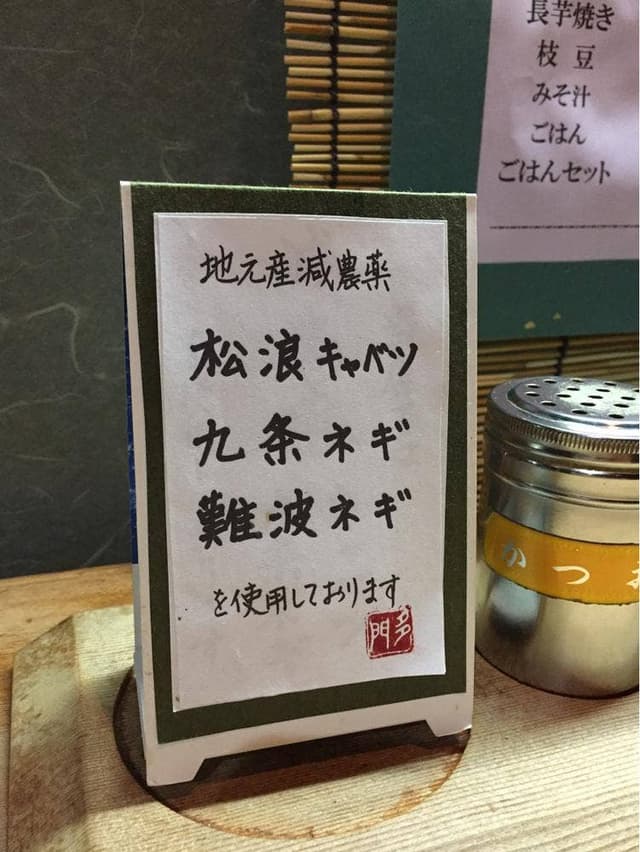 長芋焼き
枝豆
みそ汁
ごはん
ごはんセット
地元産減農薬
松浪キャベツ
九条ネギ
難波ネギ
を使用しております
多門
かつお